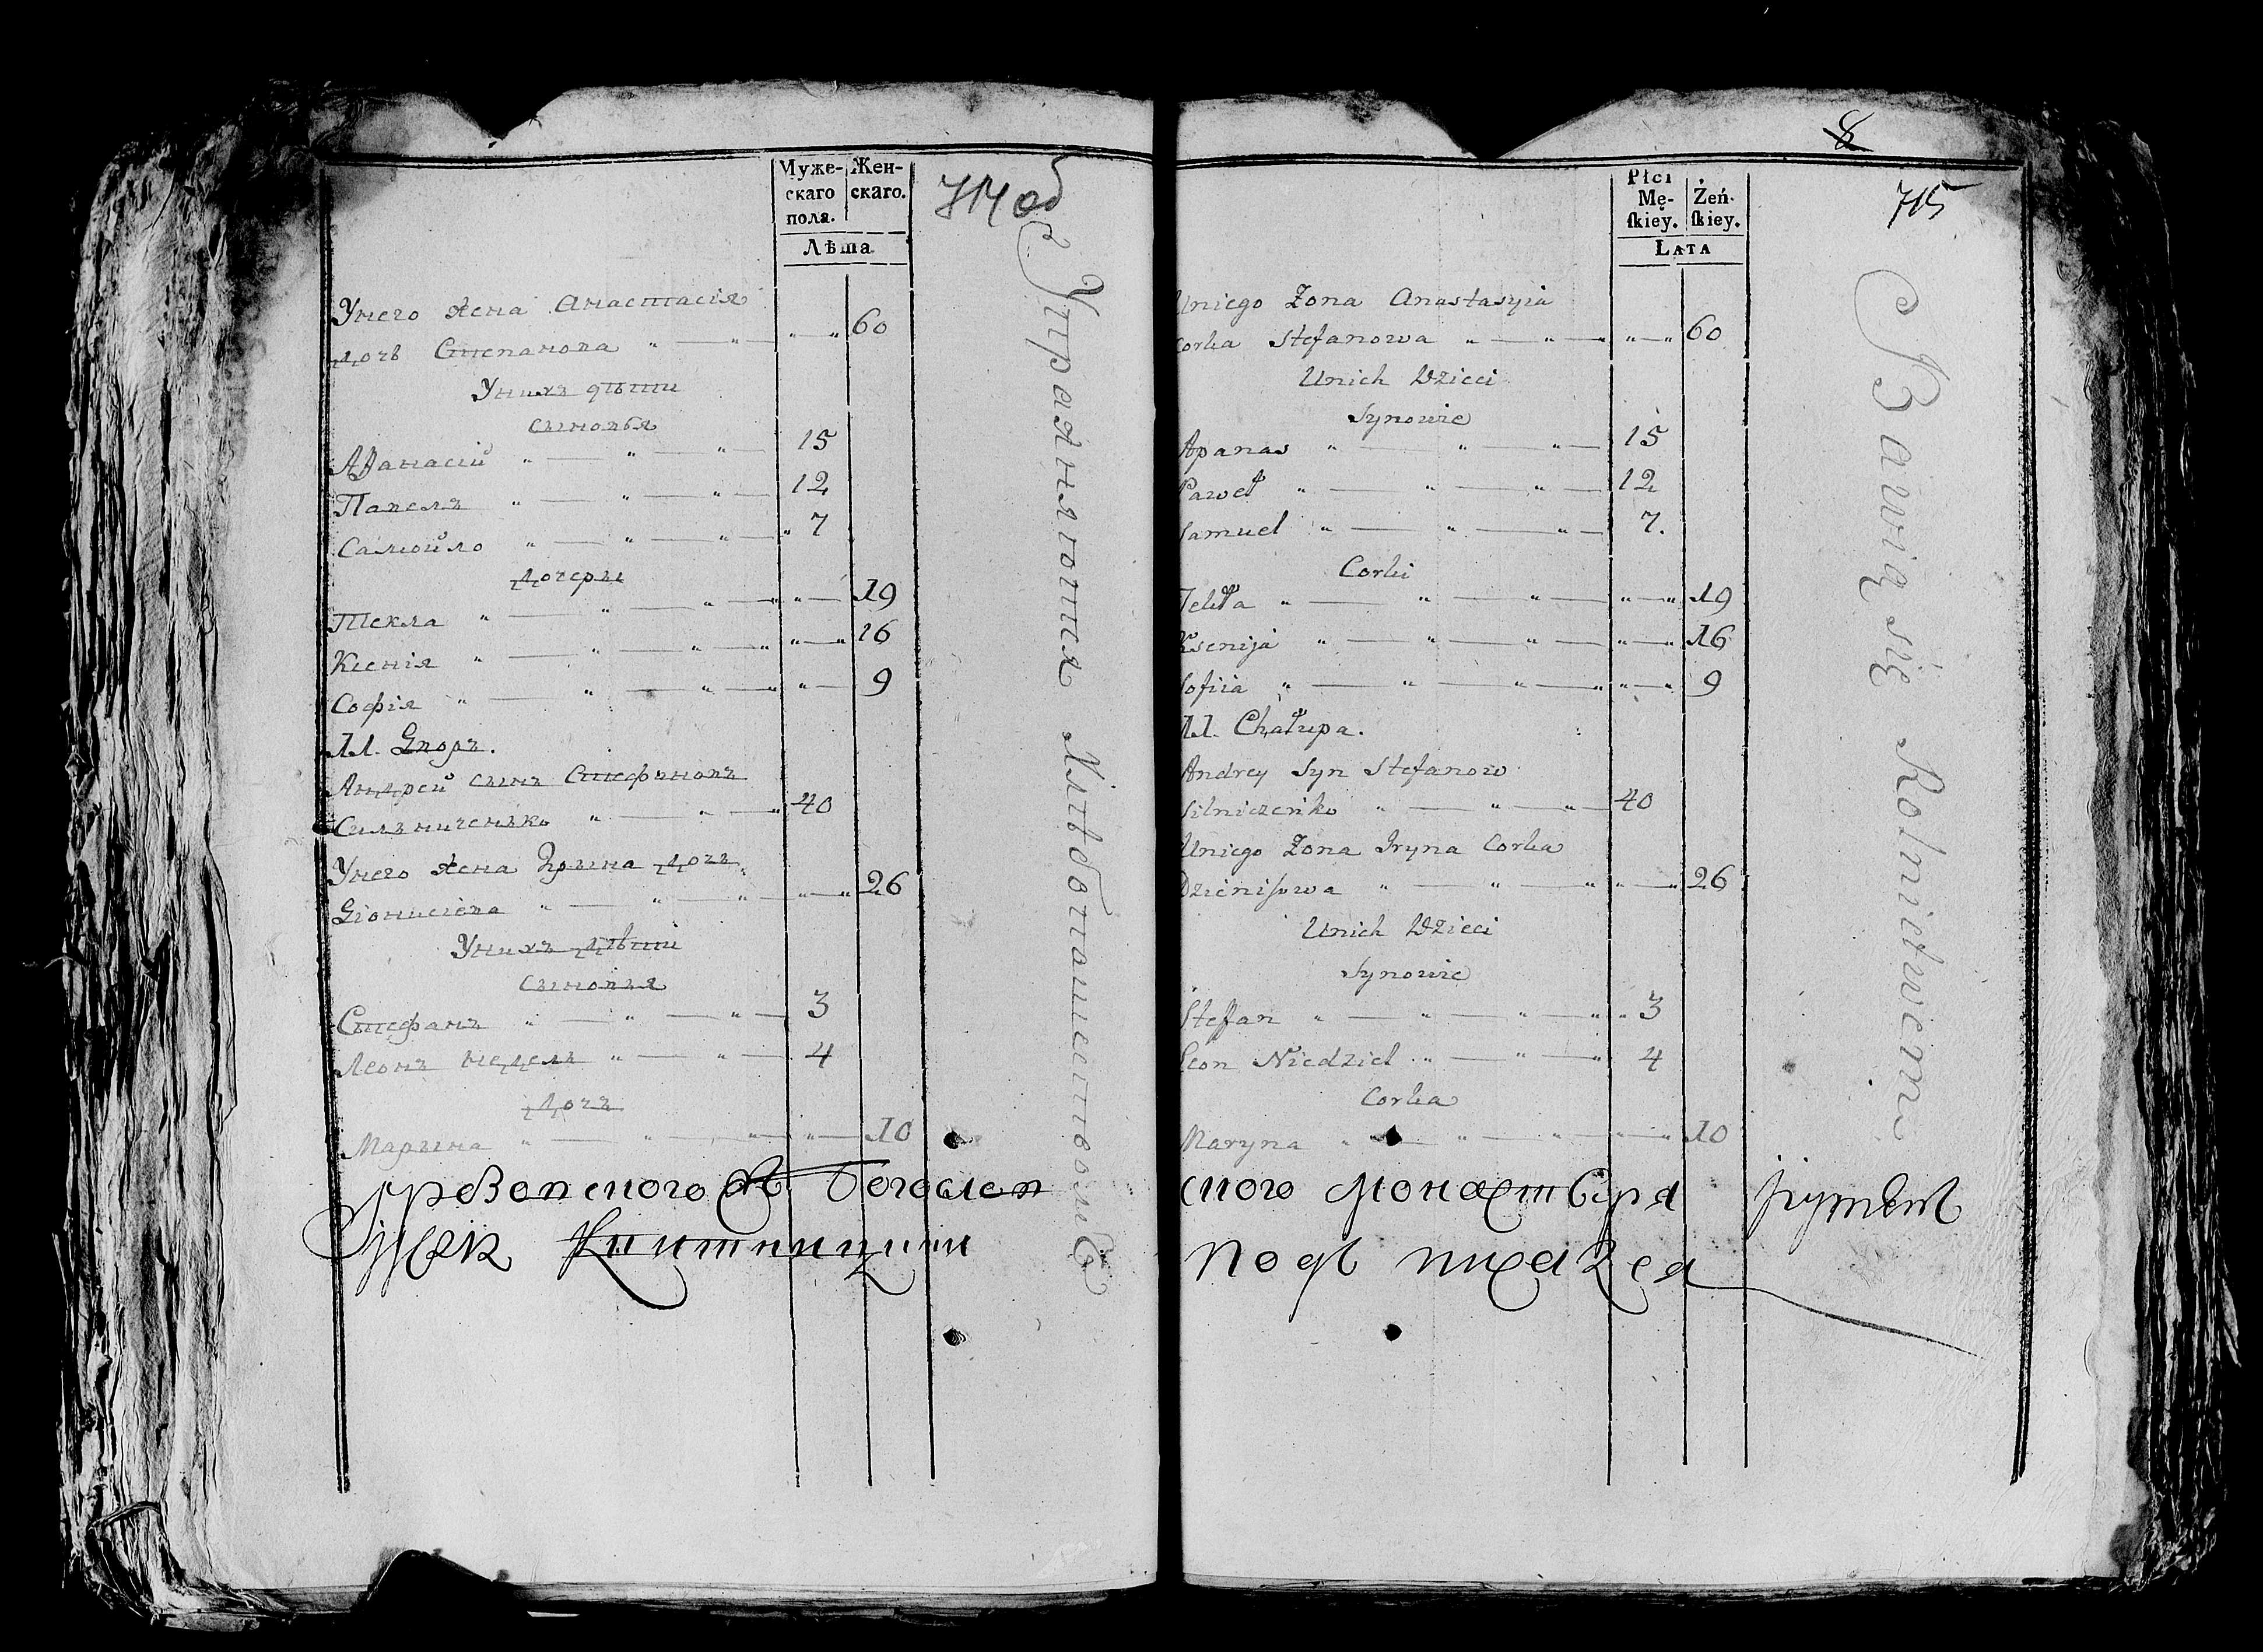 Муже-
скаго
пола.
Жен-
скаго.
Лѣта
714 об
Унего жена Анастасія
дочь Степанова 60
Унихъ дѣти
сыновья
Афанасій 15
Павелъ 12
Самойло 7
дочери
Текла 19
Ксенія 16
Софія 9
11. Дворъ.
Андрей сынъ Стефановъ
Сильниченъко 40
Унего жена Ирына дочь
Діонисіева 26
Унихъ дѣти
сыновья
Стефанъ 3
Леонъ недель 4
дочь
Марына 10
Упражняются Хлѣбопашествомъ
8
715
Płci
Mę-
ſkiey.
Żeń-
ſkiey.
LATA
Uniego Zona Anastasyia
Corka Stefanowa 60
Unich Dzieci
Synowie
Apanas 15
Paweł 12
Samuel 7.
Corki
Tekła 19
Ksenija 16
Sofiia 9
11. Chałupa.
Andrey Syn Stefanow
Silniczeńko 40
Uniego Zona Iryna Corka
Dzienisowa 26
Unich Dzieci
Synowie
Stefan 3
Leon Niedziel 4
Corka
Maryna 10
Bawią się Rolnictwem
Богослов ского Монастыра